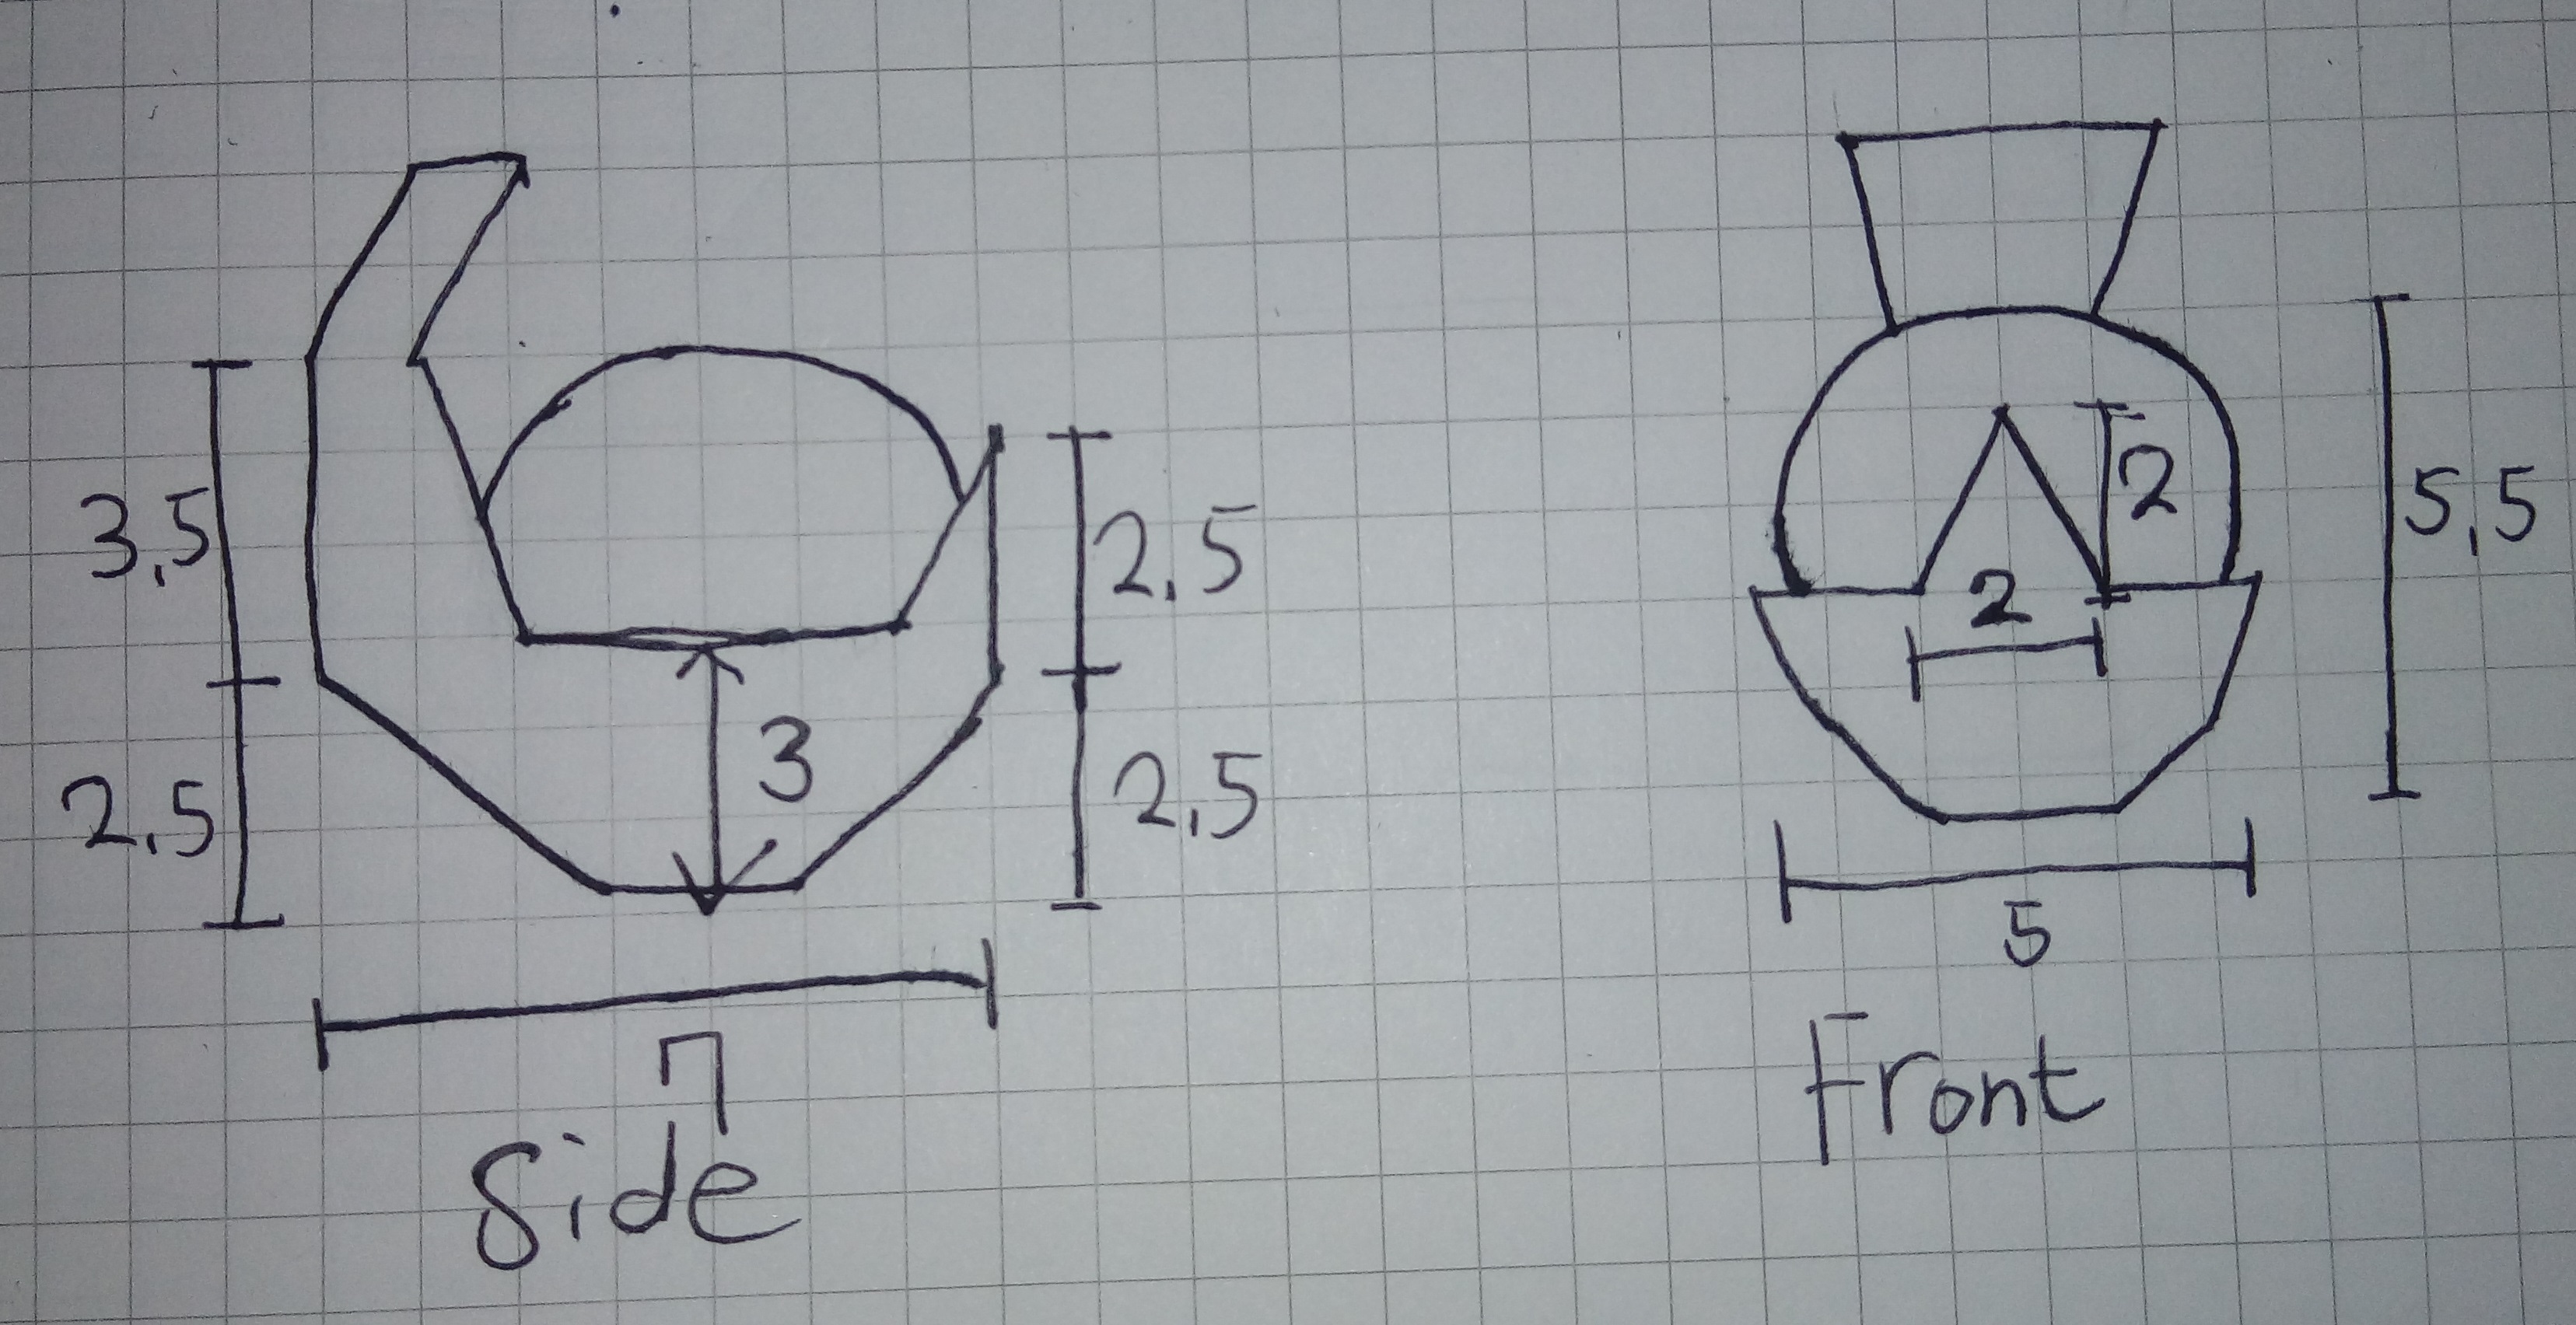 3,5
2,5
3
2,5
2,5
7
Side
2
2
5,5
5
Front